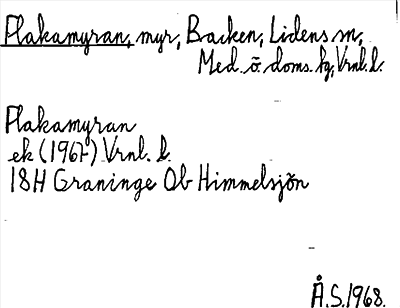 Flakamyran, myr, Backen, Lidens sn,
Med. ö. doms. hg, Vrnl. l.
Flakamyran
ek (1967) Vrnl. l.
18H Graninge Ob Himmelsjön
Å.S. 1968.